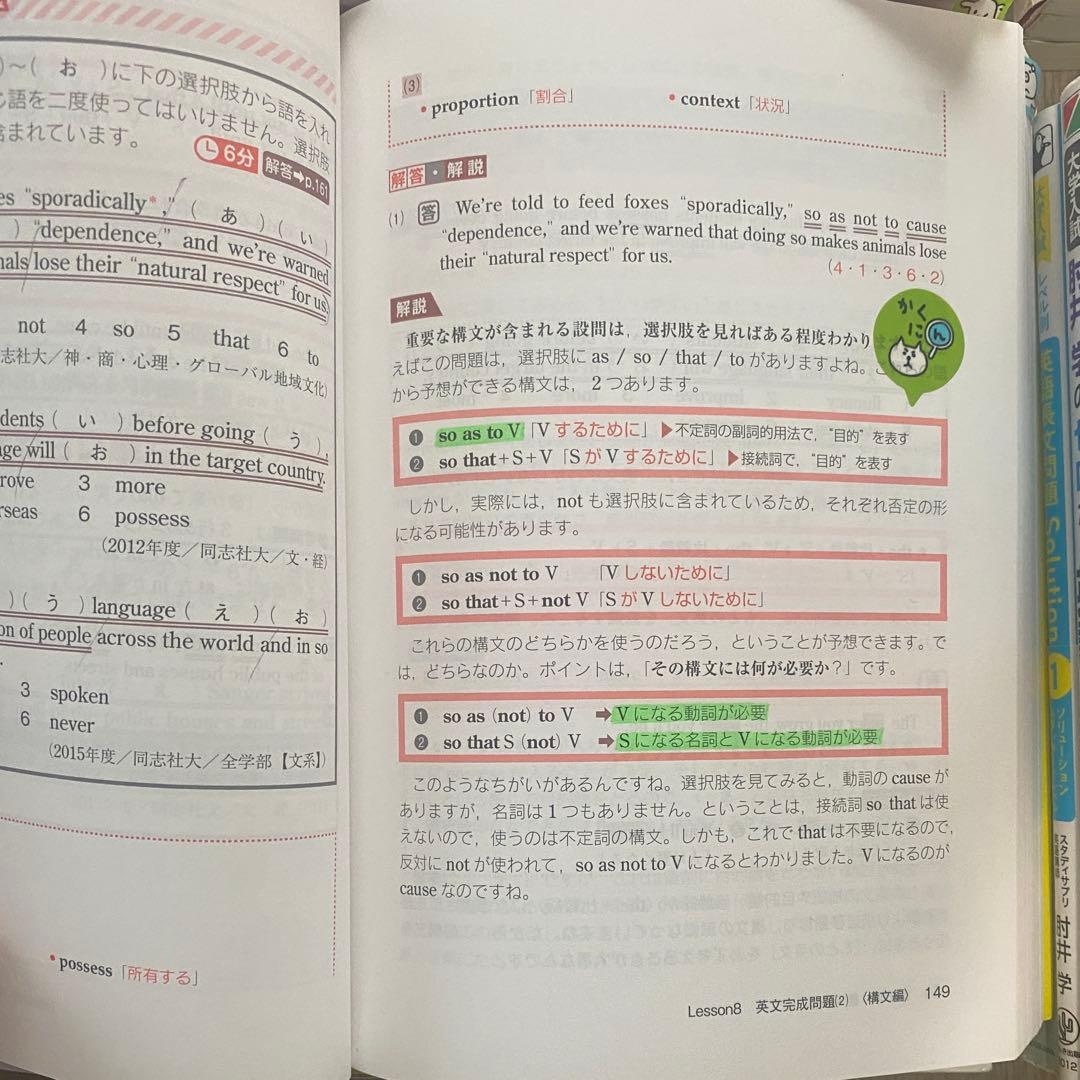 )～( お )に下の選択肢から語を入れ
語を二度使ってはいけません。選択肢
含まれています。
6分 解答➡p.161
es “sporadically*,” ( あ ) ( い )
) “dependence,” and we're warned
nals lose their “natural respect” for us.
not 4 so 5 that 6 to
志社大／神・商・心理・グローバル地域文化)
dents ( い ) before going ( う ),
ge will ( お ) in the target country.
rove 3 more
rseas 6 possess
(2012年度／同志社大／文・経)
) ( う ) language ( え ) ( お )
on of people across the world and in so
3 spoken
6 never
(2015年度／同志社大／全学部【文系】)
• possess「所有する」
(3)
• proportion「割合」 • context「状況」
解答・解説
(1) 答 We're told to feed foxes “sporadically,” so as not to cause
“dependence,” and we're warned that doing so makes animals lose
their “natural respect” for us. (4・1・3・6・2)
解説
かくにん
重要な構文が含まれる設問は，選択肢を見ればある程度わかり
えばこの問題は，選択肢に as / so / that / to がありますよね。こ
から予想ができる構文は，2つあります。
❶ so as to V「V するために」 ▶不定詞の副詞的用法で，“目的”を表す
❷ so that+S+V「S が V するために」 ▶接続詞で，“目的”を表す
しかし，実際には，not も選択肢に含まれているため，それぞれ否定の形
になる可能性があります。
❶ so as not to V 「V しないために」
❷ so that+S+not V「S が V しないために」
これらの構文のどちらかを使うのだろう，ということが予想できます。で
は，どちらなのか。ポイントは，「その構文には何が必要か？」です。
❶ so as (not) to V ➡V になる動詞が必要
❷ so that S (not) V ➡S になる名詞と V になる動詞が必要
このようなちがいがあるんですね。選択肢を見てみると，動詞の cause が
ありますが，名詞は1つもありません。ということは，接続詞 so that は使
えないので，使うのは不定詞の構文。しかも，これで that は不要になるので，
反対に not が使われて，so as not to V になるとわかりました。V になるのが
cause なのですね。
Lesson8 英文完成問題(2) 〈構文編〉 149
大学入試
レベル別
英語長文問題 Solution
ソリューション
1
スタディサプリ
英語講師
肘井 学
大学入試
肘井 学の